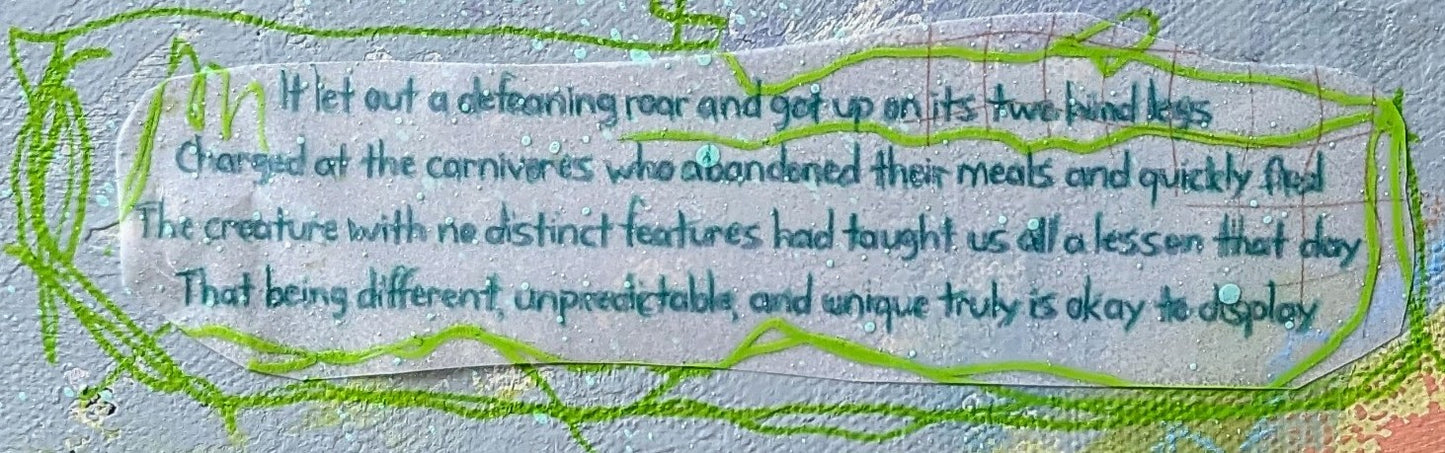 It let out a defeaning roar and got up on its two hind legs
Charged at the carnivores who abandoned their meals and quickly fled
The creature with no distinct features had taught us all a lesson that day
That being different, unpredictable, and unique truly is okay to display